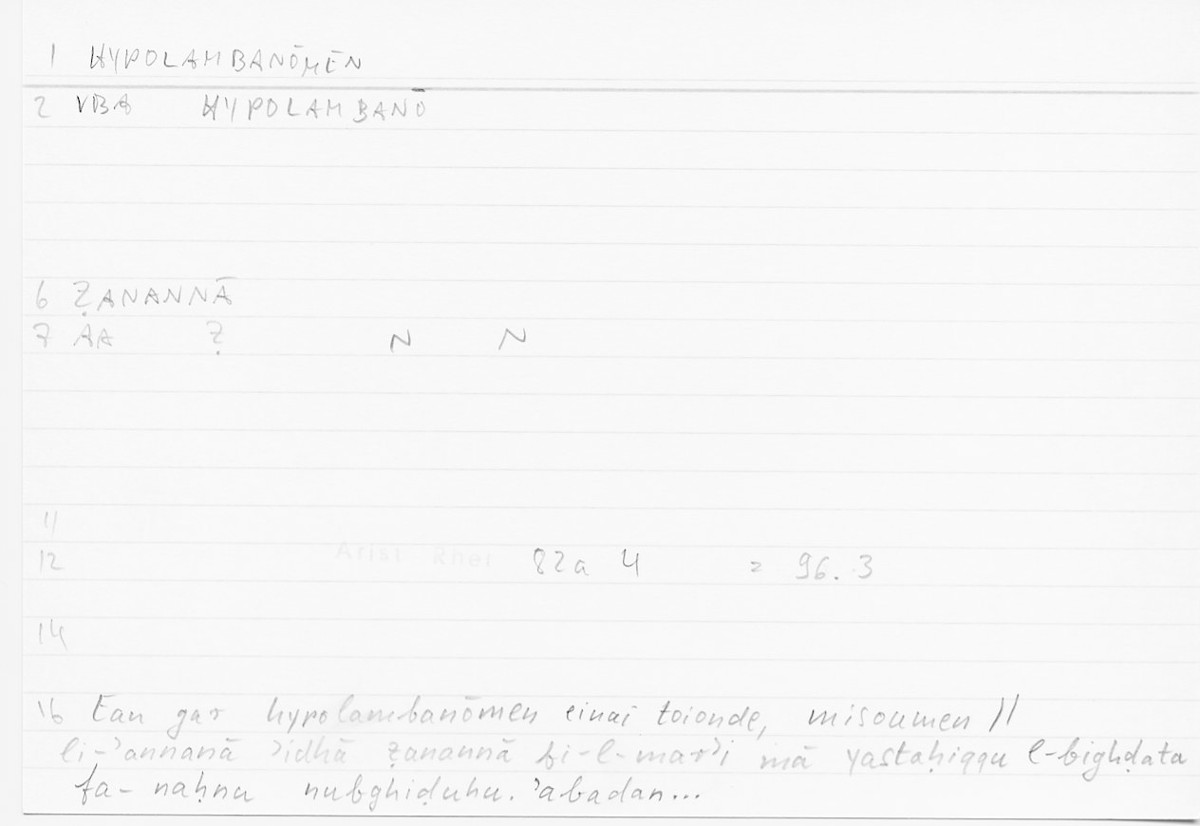 1 HYPOLAMBANŌMEN
2 VBA HYPOLAMBANŌ
6 ẒANANNĀ
7 AA Ẓ N N
11
12 Arist Rhet 82a 4 = 96.3
14
16 Ean gar hypolambanōmen einai toionde, misoumen //
li-ʾannanā ʾidhā ẓanannā bi-l-marʾi mā yastaḥiqqu l-bighḍata
fa-naḥnu nubghiḍuhu. ʾabadan...